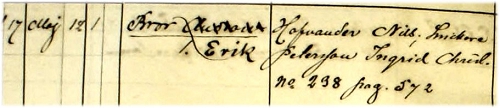 17 Maj 12 1 Bror Gustaf Hofvander Nils, Snickare
1. Erik Peterson Ingrid Christ.
no 238 pag. 572